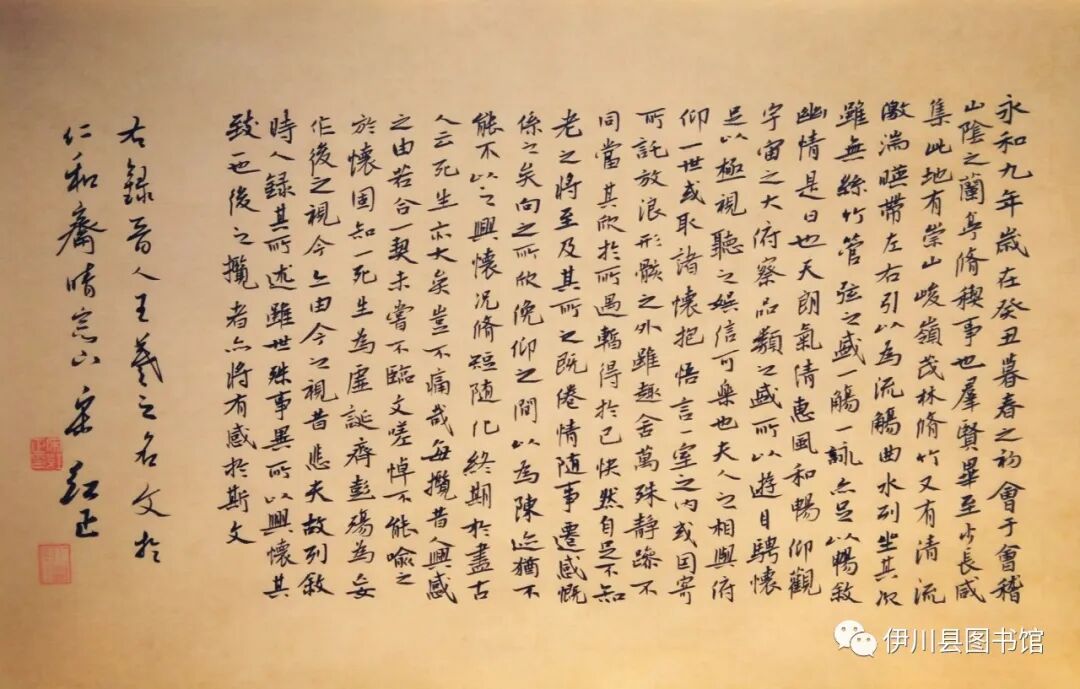 永和九年歲在癸丑暮春之初會于會稽
山陰之蘭亭脩稧事也羣賢畢至少長咸
集此地有崇山峻嶺茂林脩竹又有清流
激湍暎帶左右引以為流觴曲水列坐其次
雖無絲竹管弦之盛一觴一詠亦足以暢敘
幽情是日也天朗氣清惠風和暢仰觀
宇宙之大俯察品類之盛所以遊目騁懷
足以極視聽之娛信可樂也夫人之相與俯
仰一世或取諸懷抱悟言一室之內或因寄
所託放浪形骸之外雖趣舍萬殊靜躁不
同當其欣於所遇暫得於己快然自足不知
老之將至及其所之既倦情隨事遷感慨
係之矣向之所欣俛仰之間以為陳迹猶不
能不以之興懷況脩短隨化終期於盡古
人云死生亦大矣豈不痛哉每攬昔人興感
之由若合一契未嘗不臨文嗟悼不能喻之
於懷固知一死生為虛誕齊彭殤為妄
作後之視今亦由今之視昔悲夫故列敘
時人錄其所述雖世殊事異所以興懷其
致一也後之攬者亦將有感於斯文
右錄晉人王羲之名文於
仁和齋晴窓
伊川县图书馆